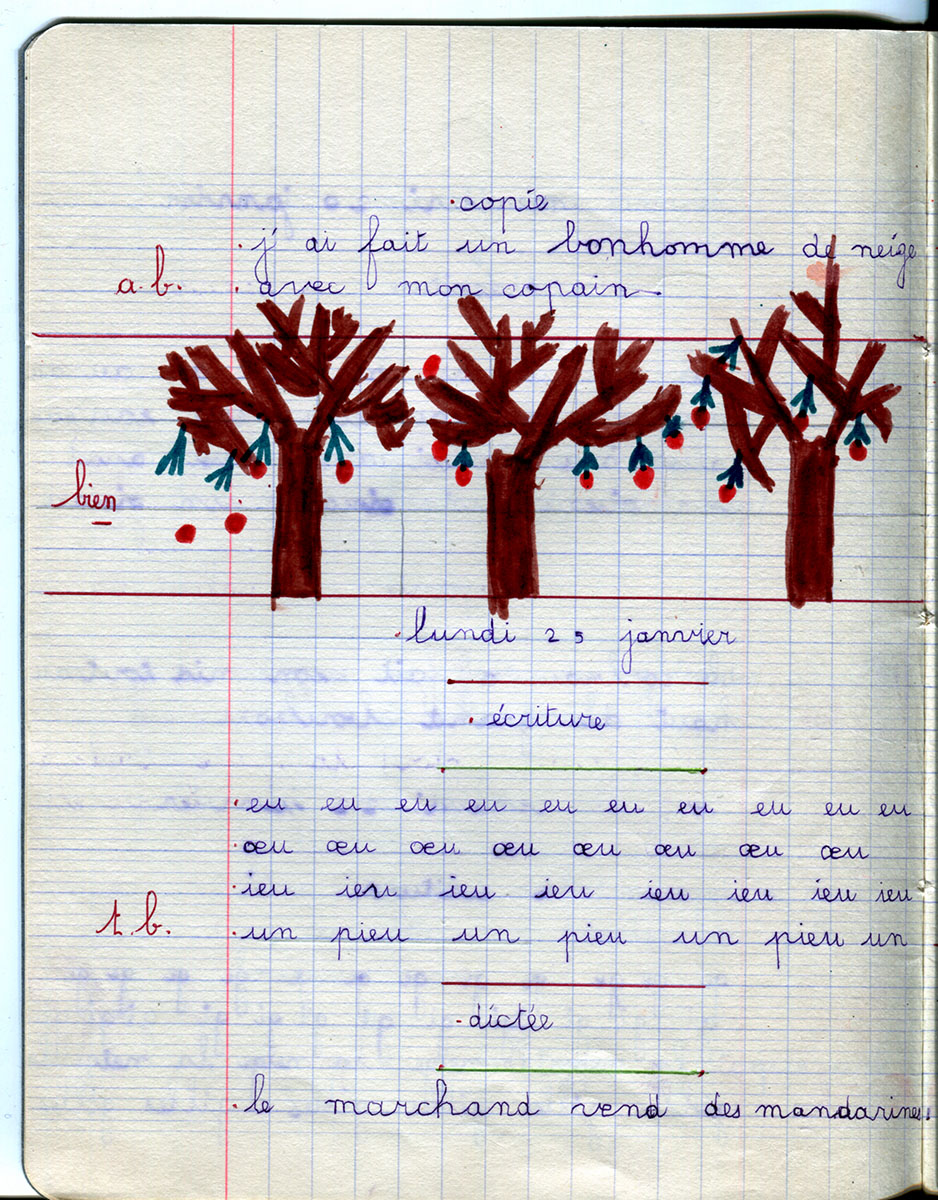 copie
j'ai fait un bonhomme de neige
a.b. avec mon copain.
bien
lundi 25 janvier
écriture
eu eu eu eu eu eu eu eu eu eu
œu œu œu œu œu œu œu œu
ieu ieu ieu ieu ieu ieu ieu ieu
t.b. un pieu un pieu un pieu un
dictée
le marchand vend des mandarines.